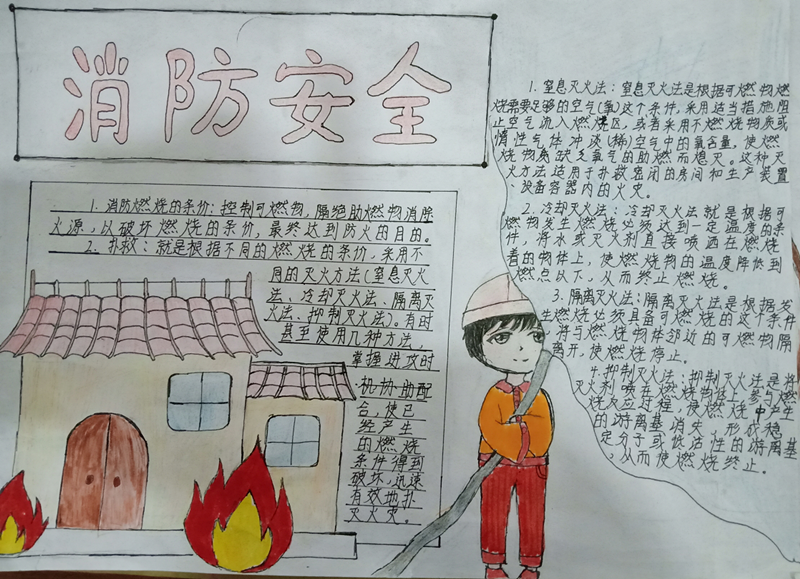 消防安全
1. 消防燃烧的条价:控制可燃物,隔绝助燃物消除
火源,以破坏燃烧的条价,最终达到防火的目的。
2. 扑救:就是根据不同的燃烧的条价,采用不
同的灭火方法(窒息灭火
法、冷却灭火法、隔离灭
火法、抑制灭火法)。有时
甚至使用几种方法,
掌握进攻时
机协助配
合,使已
经产生
的燃烧
条件得到
破坏,迅速
有效地扑
灭火灾。
1. 窒息灭火法:窒息灭火法是根据可燃物燃
烧需要足够的空气(氧)这个条件,采用适当措施阻
止空气流入燃烧区,或者采用不燃烧物质或
惰性气体冲淡(稀)空气中的氧含量,使燃
烧物质缺乏氧气的助燃而熄灭。这种灭
火方法适用于扑救密闭的房间和生产装置
、设备容器内的火灾。
2. 冷却灭火法:冷却灭火法就是根据可
燃物发生燃烧必须达到一定温度的条
件,将水或灭火剂直接喷洒在燃烧
着的物体上,使燃烧物的温度降低到
燃点以下,从而终止燃烧。
3. 隔离灭火法:隔离灭火法是根据发
生燃烧必须具备可燃烧的这个条件
,将与燃烧物体邻近的可燃物隔
离开,使燃烧停止。
4. 抑制灭火法:抑制灭火法是将
灭火剂喷在燃烧物体上,参与燃
烧反应过程,使燃烧中产生
的游离基消失,形成稳
定分子或低活性的游离基
,从而使燃烧终止。